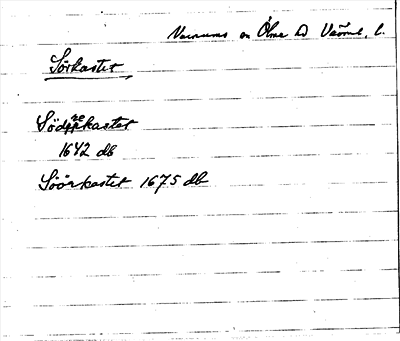 Varnums sn Ölme hd Värml. l.
Sörkastet
Söderekastet
1642 db
Söörkastet 1675 db